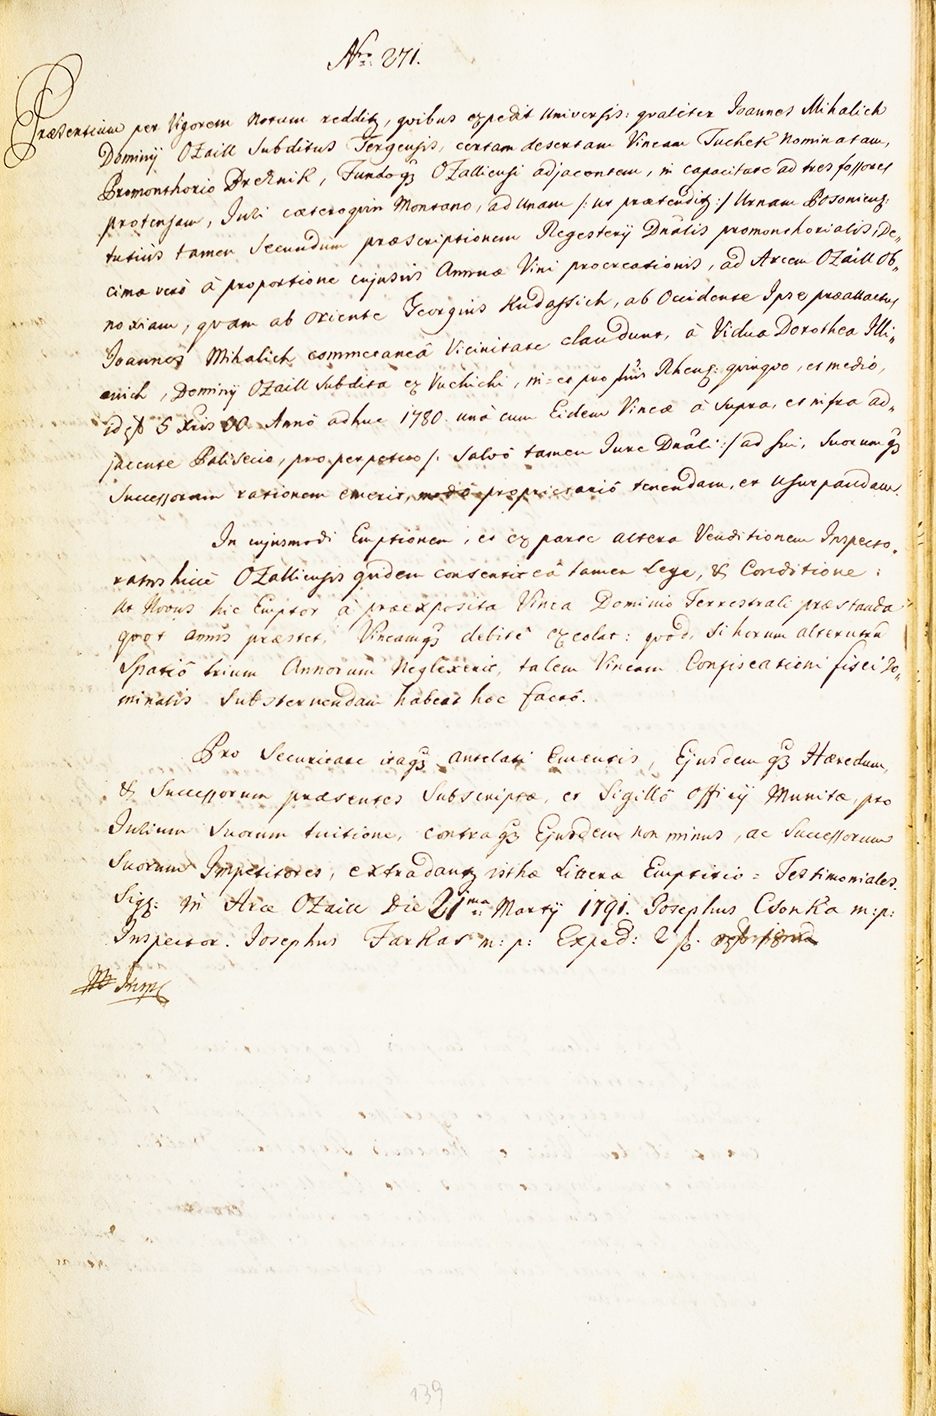 Nro 271.
Præsentium per Vigorem Notum redditq, quibus expedit Universis: qualiter Joannes Mihalich
Dominij OZaill Subditus Tergensis, certam desertam Vineam Tuchek Nominatam,
Promonthorio Dreknik, Fundoq OZalliensi adjacentem, in capacitate ad tres fossores
protensam, Juli cæteroquin Montano, ad Unam /: ut prætenditq :/ Urnam Posoniens:
tutius tamen Secundum præscriptionem Regesterij Dnalis promonthorialis, De„
cimæ verò â proportione cujusvis Annuæ Vini procreationis, ad Arcem OZaill Ob„
noxiam, quam ab oriente Georgius Hudassich, ab Occidente Ipse præattactus
Joannes Mihalich commetaneâ Vicinitate claudunt, â Vidua Dorothea Illi„
anich, Dominij OZaill Subdita ex Vuchichi, in= et pro flnis Rhens: quinque, et medio,
id est 5 Xris 30 Annô adhuc 1780 unâ cum Eidem Vineæ â Supra, et infra ad„
jacente Paliseio, pro perpetuo /: Salvô tamen Jure Dnali :/ ad sui, Suorumq
Successorum rationem emerit, modô proprietariô tenendam, et usurpandam.
In cujusmodi Emptionem, et ex parte altera Venditionem Inspecto„
ratus hicce OZalliensis quidem consentit eâ tamen Lege, & Conditione:
Ut Novus hic Emptor â præexposita Vinea Dominio Terrestrali præstanda
quot annis præstet, Vineamq debitè excolat: quòd, si horum alterutrum
Spatiô trium Annorum Neglexerit, talem Vineam Confiscationi fisci Do„
minalis Substernendam habeat hoc factô.
Pro Securitate itaq antelati Ementis, Ejusdemq Hæredum,
& Successorum præsentes Subscriptæ, et Sigillô Officij Munitæ, pro
Julium Suorum tuitione, contraq Ejusdem non minus, ac Successorum
Suorum Impetitores, extradantq isthæ Litteræ Emptitio = Testimoniales.
Sigq: in Arce OZaill Die 21ma Martij 1791. Josephus Csonka m:p:
Inspector. Josephus Farkas m:p: Exped: 2 f.
139